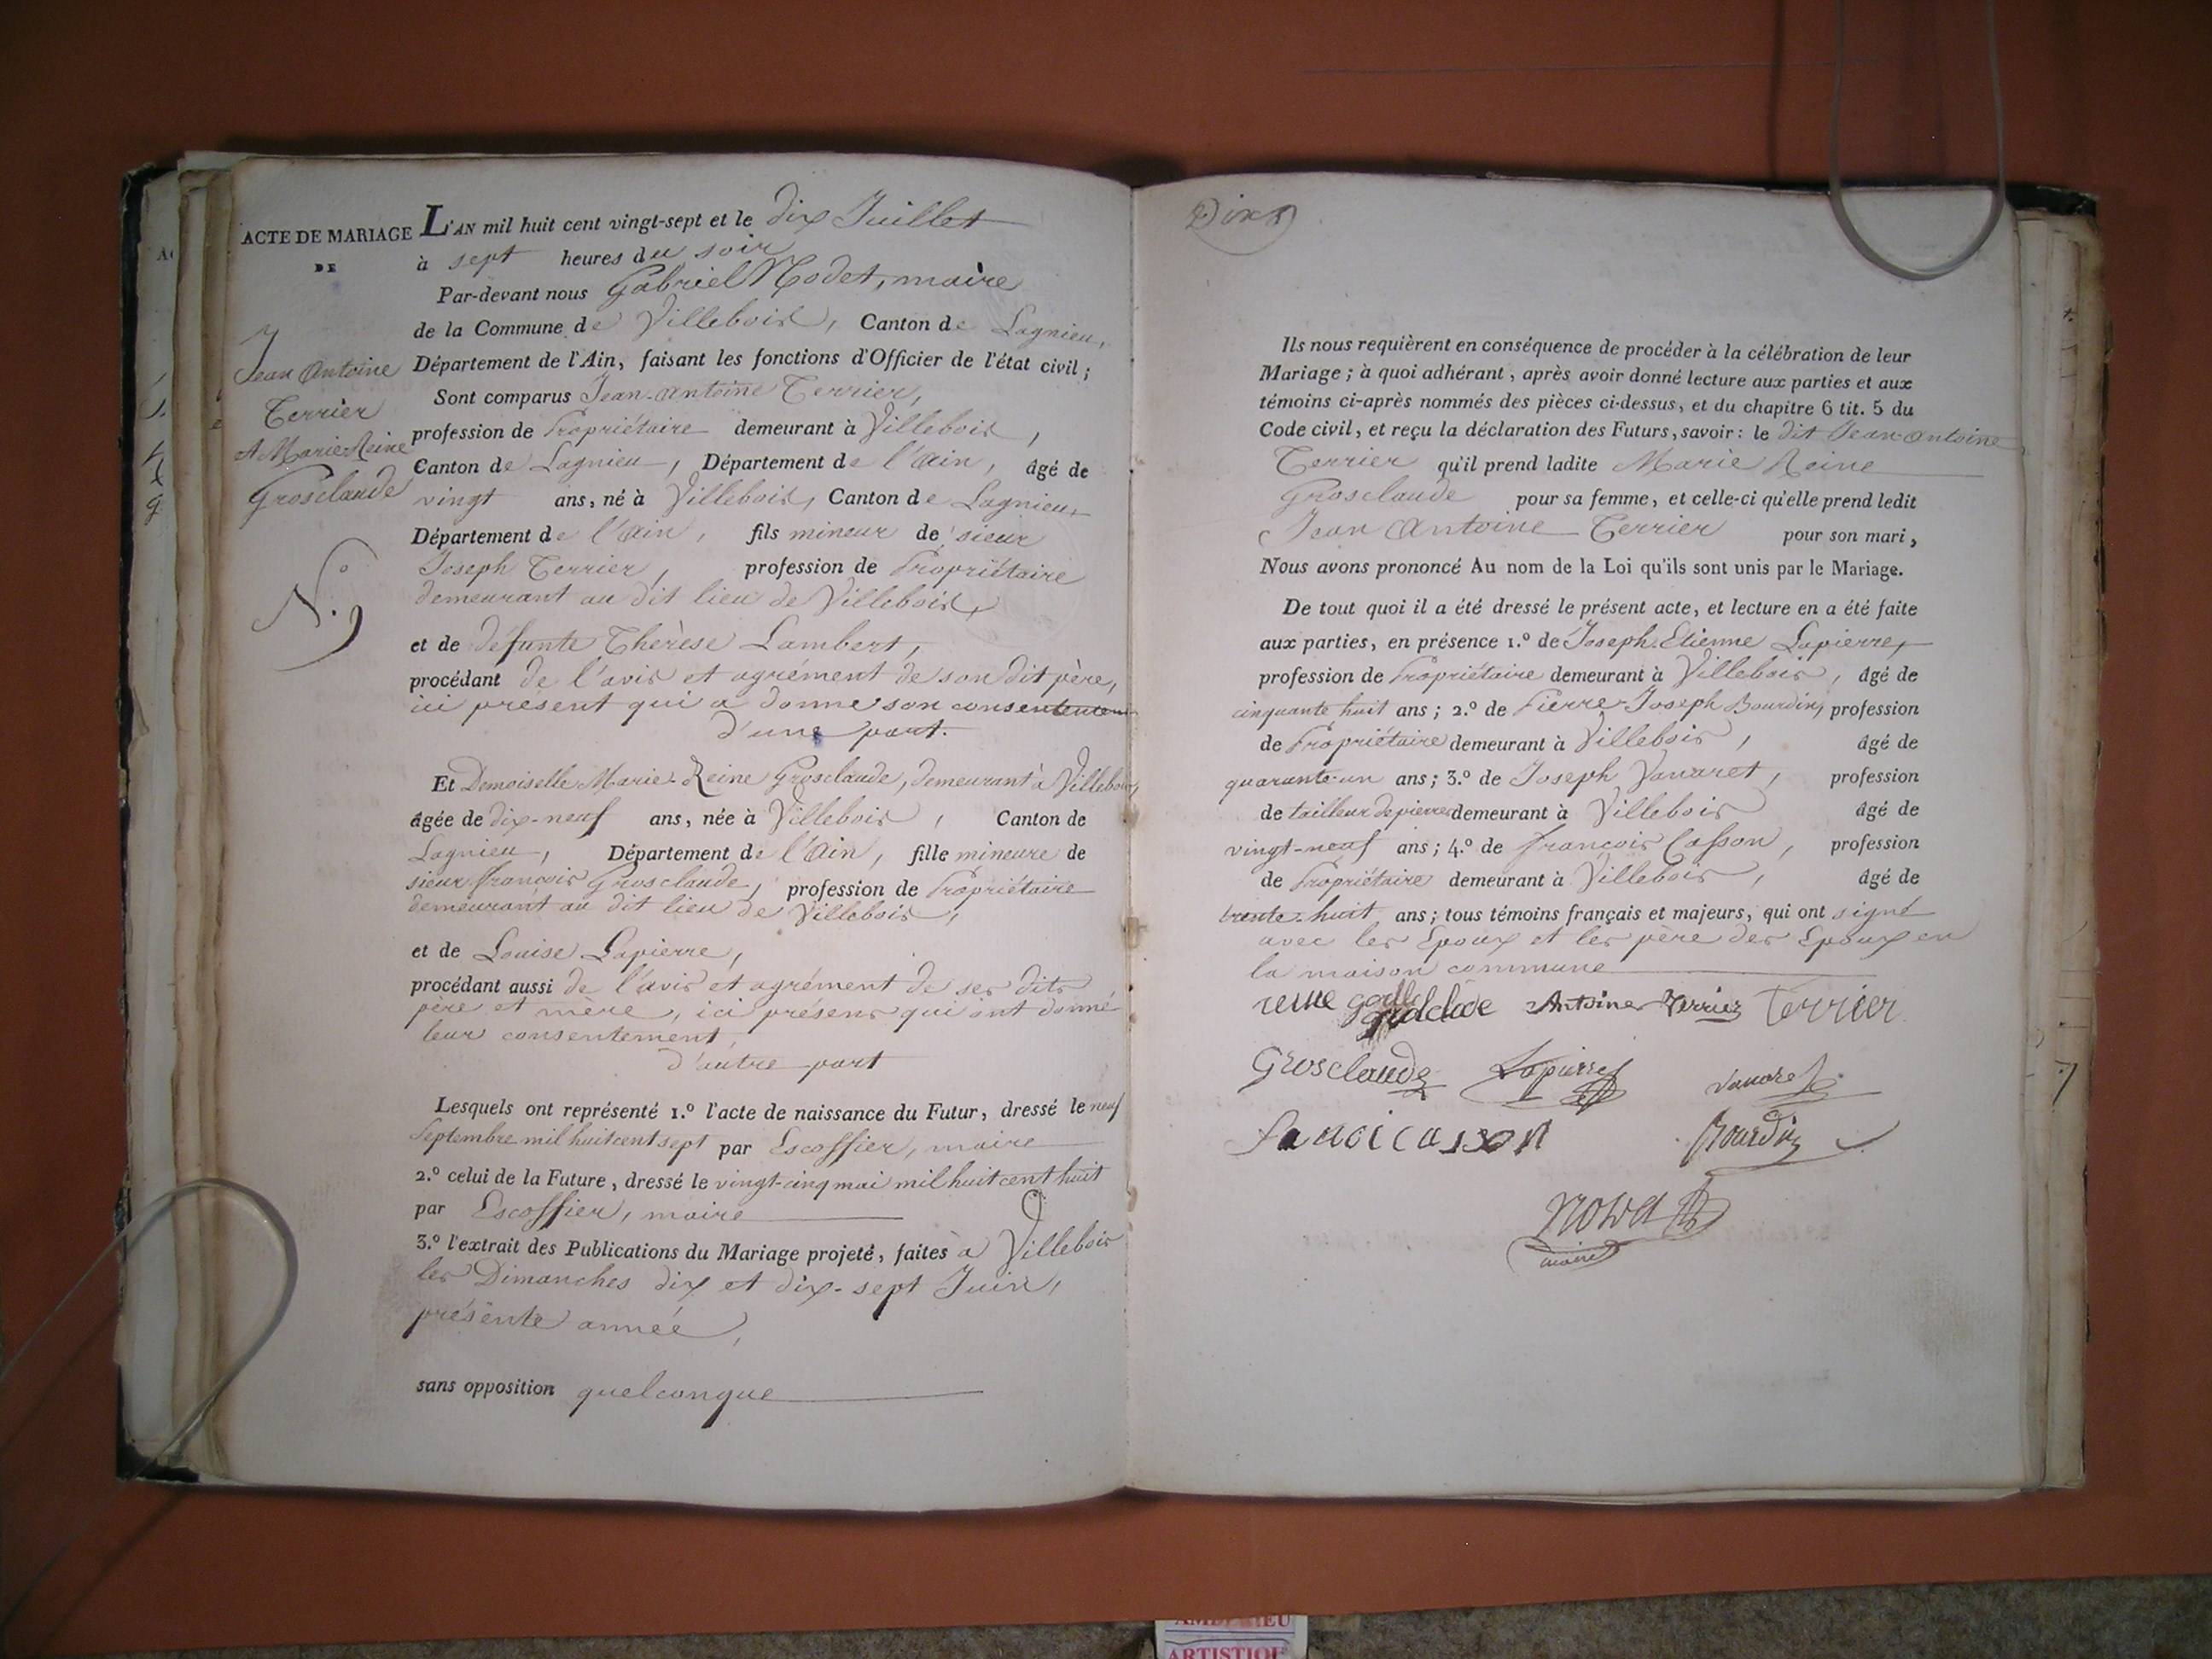 ACTE DE MARIAGE
DE
Jean Antoine
Terrier
et Marie Reine
Grosclaude
N.° 9
L'AN mil huit cent vingt-sept et le dix Juillet
à sept heures du soir
Par-devant nous Gabriel Nodet, maire
de la Commune de Villebois, Canton de Lagnieu,
Département de l'Ain, faisant les fonctions d'Officier de l'état civil;
Sont comparus Jean-Antoine Terrier,
profession de Propriétaire demeurant à Villebois,
Canton de Lagnieu, Département de l'Ain, âgé de
vingt ans, né à Villebois, Canton de Lagnieu,
Département de l'Ain, fils mineur de sieur
Joseph Terrier, profession de Propriétaire
demeurant au dit lieu de Villebois,
et de défunte Thérèse Lambert,
procédant de l'avis et agrément de son dit père,
ici présent qui a donné son consentement
d'une part.
Et Demoiselle Marie-Reine Grosclaude, demeurant à Villebois,
âgée de dix-neuf ans, née à Villebois, Canton de
Lagnieu, Département de l'Ain, fille mineure de
sieur françois Grosclaude, profession de Propriétaire
demeurant au dit lieu de Villebois,
et de Louise Lapierre,
procédant aussi de l'avis et agrément de ses dits
père et mère, ici présens qui ont donné
leur consentement,
d'autre part
Lesquels ont représenté 1.° l'acte de naissance du Futur, dressé le neuf
Septembre mil huit cent sept par Escoffier, maire
2.° celui de la Future, dressé le vingt-cinq mai mil huit cent huit
par Escoffier, maire
3.° l'extrait des Publications du Mariage projeté, faites à Villebois
les Dimanches dix et dix-sept Juin,
présente année,
sans opposition quelconque
Ils nous requièrent en conséquence de procéder à la célébration de leur
Mariage; à quoi adhérant, après avoir donné lecture aux parties et aux
témoins ci-après nommés des pièces ci-dessus, et du chapitre 6 tit. 5 du
Code civil, et reçu la déclaration des Futurs, savoir: le dit Jean-Antoine
Terrier qu'il prend ladite Marie Reine
Grosclaude pour sa femme, et celle-ci qu'elle prend ledit
Jean Antoine Terrier pour son mari,
Nous avons prononcé Au nom de la Loi qu'ils sont unis par le Mariage.
De tout quoi il a été dressé le présent acte, et lecture en a été faite
aux parties, en présence 1.° de Joseph Etienne Lapierre,
profession de Propriétaire demeurant à Villebois, âgé de
cinquante huit ans; 2.° de Pierre-Joseph Bourdin, profession
de Propriétaire demeurant à Villebois, âgé de
quarante-un ans; 3.° de Joseph Vanaret, profession
de tailleur de pierres demeurant à Villebois âgé de
vingt-neuf ans; 4.° de françois Casson, profession
de Propriétaire demeurant à Villebois, âgé de
trente-huit ans; tous témoins français et majeurs, qui ont signé
avec les Epoux et les père des Epoux en
la maison commune
Antoine Terrier Terrier
Grosclaude Lapierre Vanaret
Bourdin
maire
ARTISTIQUE